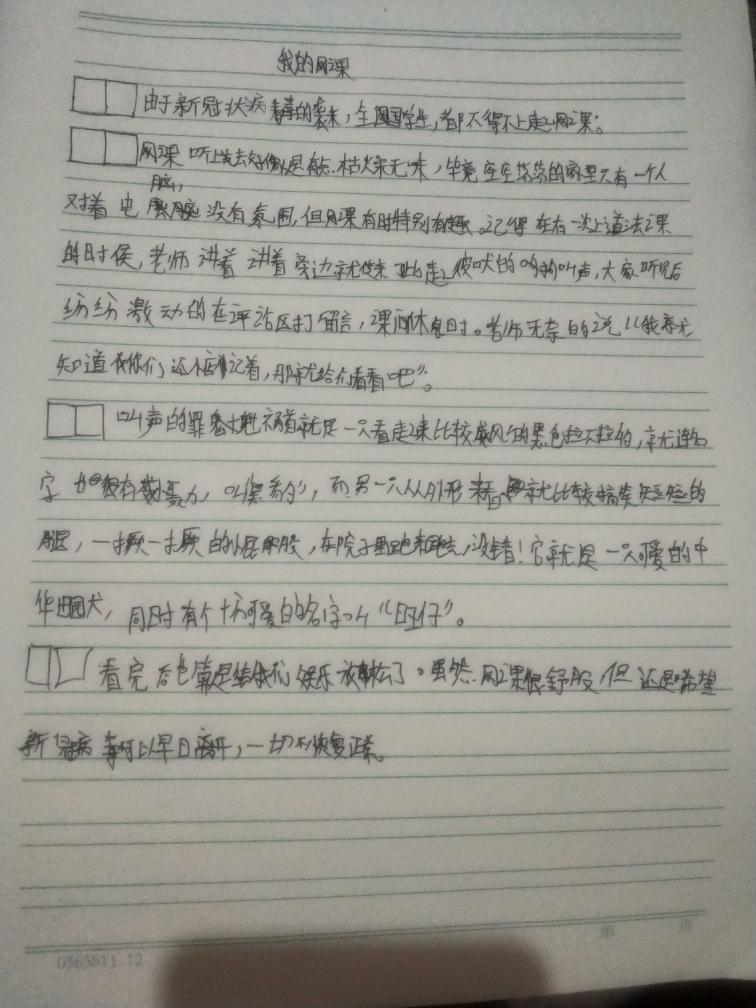 我的网课
由于新冠状病毒的袭来，全国学生，都不得不上起网课。
网课听上去好像是有点枯燥无味，毕竟空空荡荡的家里只有一个人
脑，
对着电 没有氛围，但网课有时特别有趣。记得在有一次上道法课
的时侯，老师讲着讲着旁边就传来 此起彼吠的 叫声，大家听后
纷纷激动的在评论区打留言，课间休息时。老师无奈的说“我就
知道你们还惦记着，那就给们看看吧”。
叫声的罪魁祸首就是一只看起来比较威风的黑色拉不拉的，就连名
字也很有 力，叫“黑豹”，而另一只从外形来看就比较搞笑短短的
腿，一扭一扭的小屁股，在院子里跑来跑去，没错！它就是一只可爱的中
华田园犬，同时有个十分可爱的名字叫“旺仔”。
看完后也算是给我们娱乐放松了。虽然网课很舒服，但还是希望
新冠病毒可以早日离开，一切恢复正常。
第 页
0565811.12